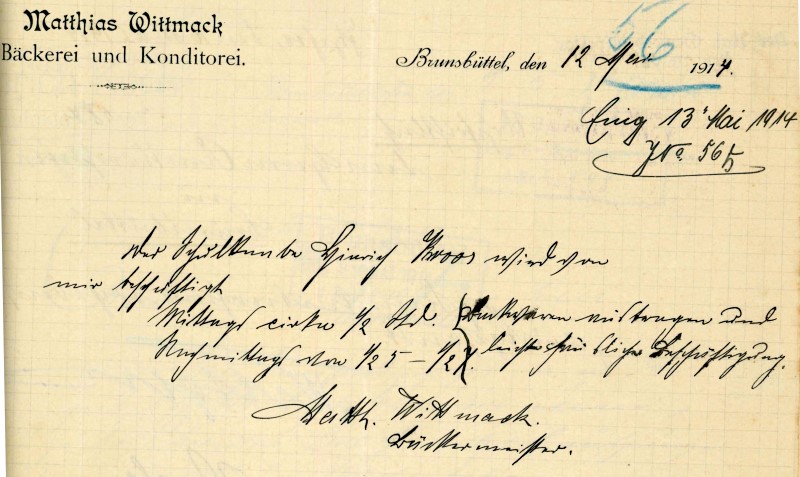 Matthias Wittmack
Bäckerei und Konditorei.
56
Brunsbüttel, den 12 Mai 1914.
Eing 13' Mai 1914
JNo. 565
Der Schulknabe Hinrich Kroos wird von
mir beschäftigt
Mittags cirka 1/2 Std. Backwaren austragen und
Nachmittags von 1/2 5 – 1/2 7. leichte häusliche Beschäftigung.
Matth. Wittmack.
Bäckermeister.